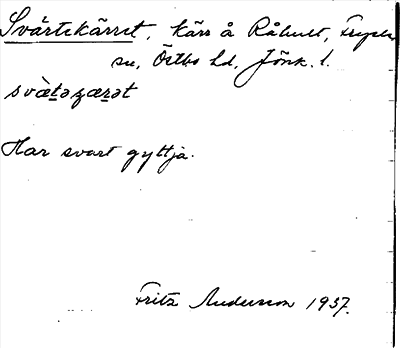 Svärtekärret, kärr å Råhult, Fryele
sn, Östbo hd, Jönk. l.
svæ̀təʒærət
Har svart gyttja.
Fritz Andersson 1937.